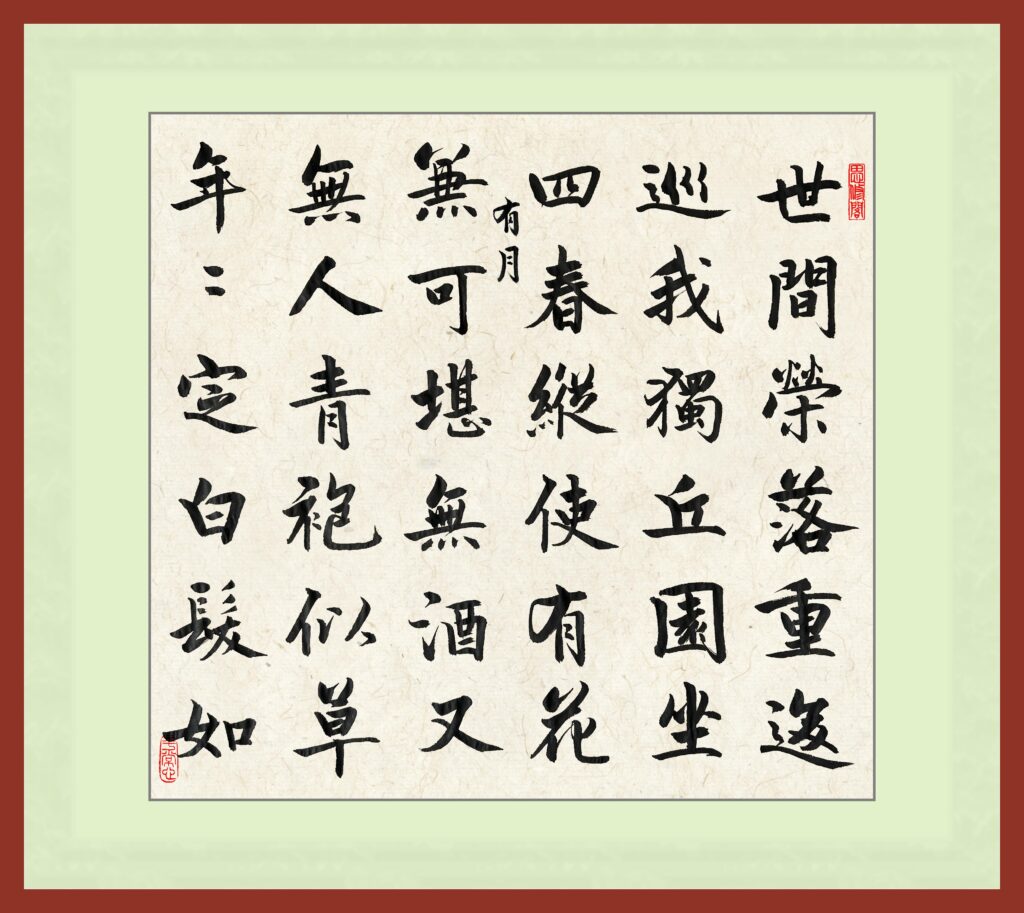 世間榮落重逡
巡我獨丘園坐
四春縱使有花
有月
兼可堪無酒又
無人青袍似草
年〻定白髮如